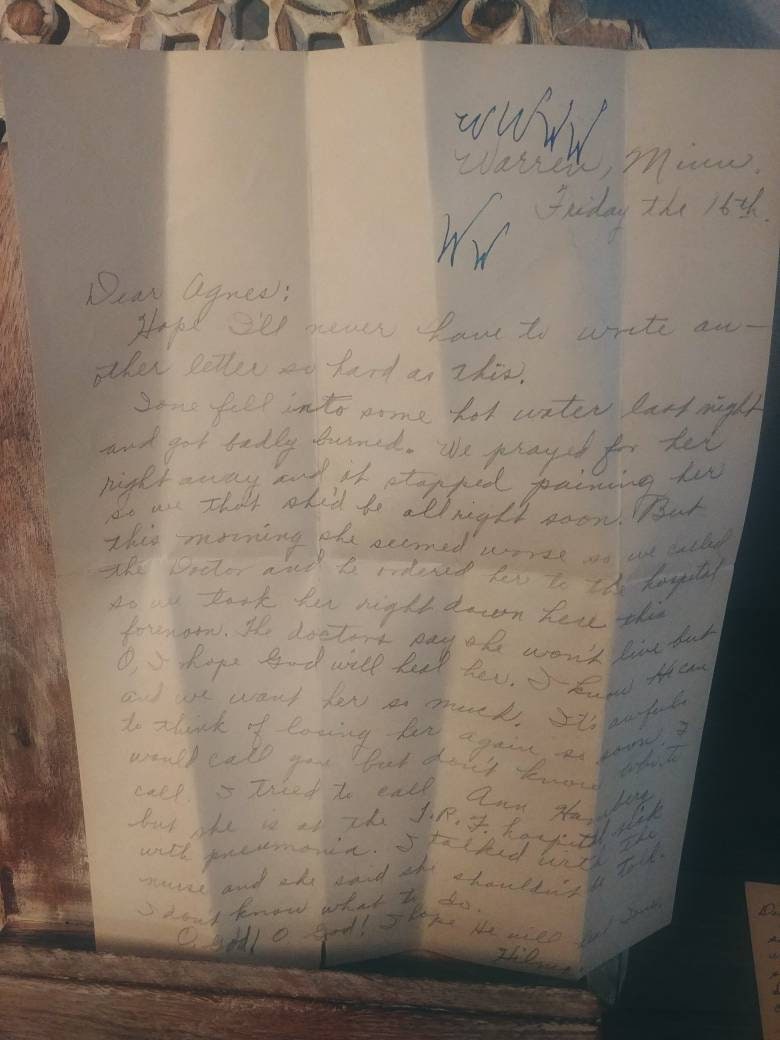 W W W W
Warren, Minn.
Friday the 16th.
W W
Dear Agnes:
Hope I'll never have to write an-
other letter so hard as this.
Ione fell into some hot water last night
and got badly burned. We prayed for her
right away and it stopped paining her
so we thot she'd be allright soon. But
this morning she seemed worse so we called
the Doctor and he ordered her to the hospital
so we took her right down here this
forenoon. The doctors say she won't live but
O, I hope God will heal her. I know He can
and we want her so much. It's awful
to think of losing her again so soon. I
would call you but don't know who to
call. I tried to call Ann Hamberg
but she is at the T.R.F. hospital sick
with pneumonia. I talked with the
nurse and she said she shouldn't talk.
I dont know what to do.
O, God! O God! I hope He will heal Ione.